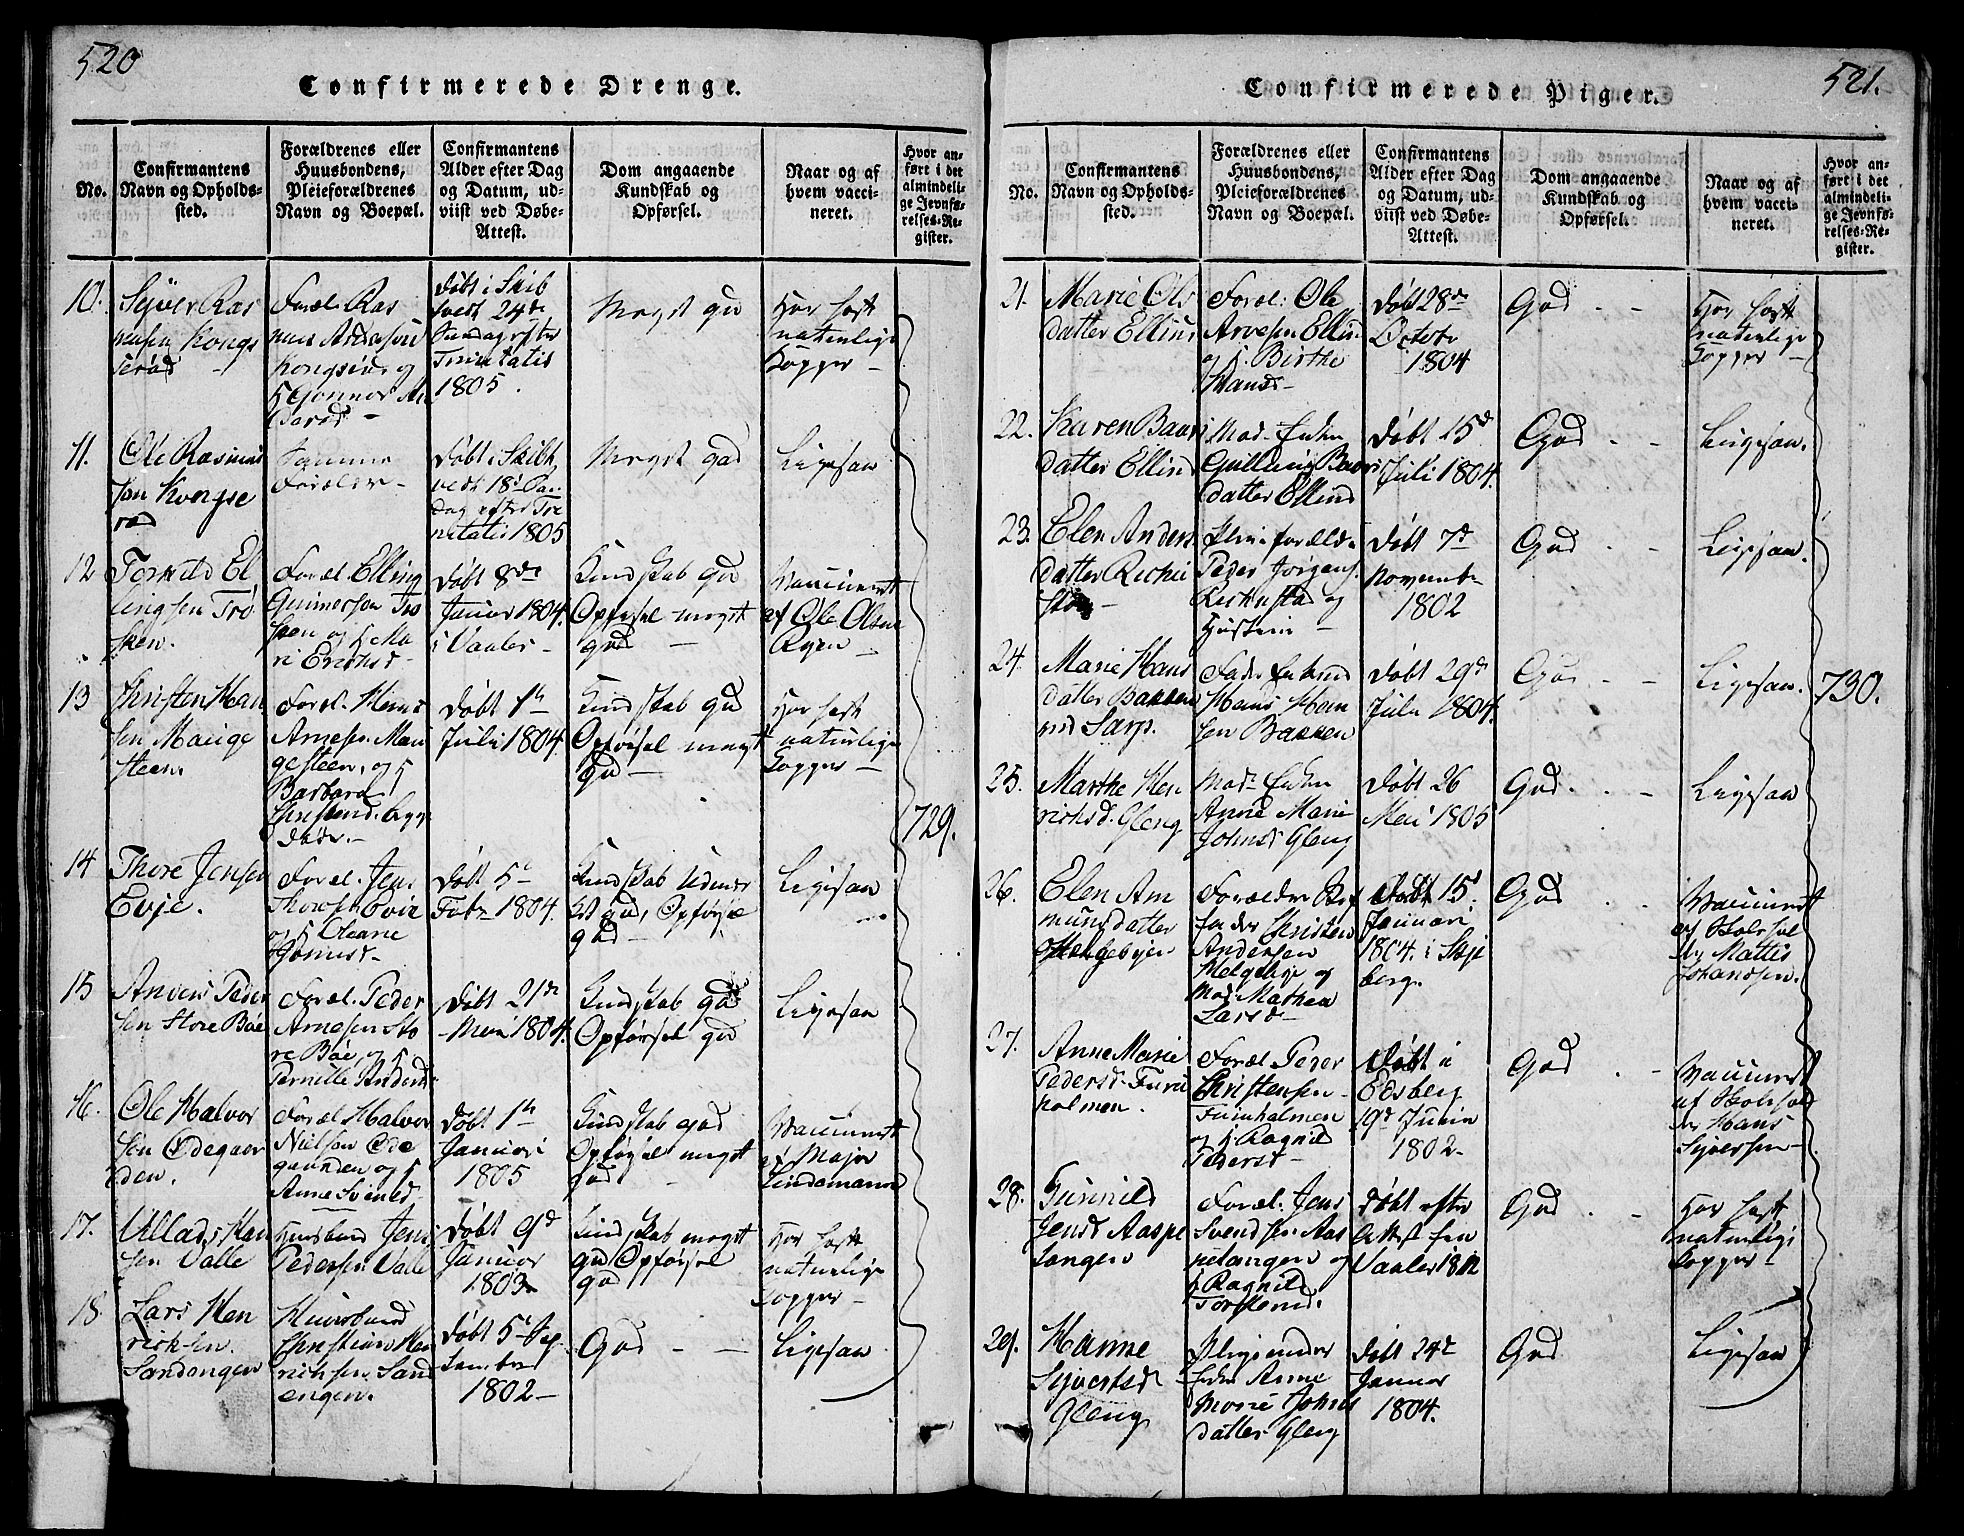 520
Confirmerede Drenge.
No.
Confirmantens
Navn og Opholds-
sted.
Forældrenes eller
Huusbondens,
Pleieforældrenes
Navn og Boepæl.
Confirmantens
Alder efter Dag
og Datum, ud-
viist ved Døbe-
Attest.
Dom angaaende
Kundskab og
Opførsel.
Naar og af
hvem vacci-
neret.
Hvor an-
ført i det
almindeli-
ge Jevnfø-
relses-Re-
gister.
10.
Sejver Ras
musen Kongs
Foræl. Ras
Kongsrud og
Døbt i Skib
tvedt 24de
Søndag efter
Trinitatis
1805.
Meget god
Har haft
naturlige
Kopper –
11.
Ole Rasmus
sen Kongse
rød
Samme
Forældre –
Døbt i Skibt
vedt 18de Søn
dag efter Tri
nitatis 1805
Meget god
Ligesaa
12
Torkild El
lingsen Trø
sken.
Foræl. Elling
Gunnersen Trø
sken og H. Ma
ri Erichsd –
Døbt 8de
Januar 1804.
i Vaaler –
Kundskab god
Opførsel meget
god –
Vaccineret
af Ole Olsen
13
Christen Han
sen Mauge
steen.
Foræl. Hans
Arnesen Mau
gesteen, og H
Barbara
Christend.
døde. –
Døbt 1te
Juli 1804.
Kundskab god
Opførsel meget
god –
Har haft
naturlige
Kopper –
729.
14
Thore Jensen
Evje.
Foræl. Jens
Thoresen Evie
og H. Oleane
Døbt 5te
Febr 1804.
Kundskab Udmær
ket god, Opførsel
god –
Ligesaa
15
Anders Peder
sen Store Bøe
Foræl. Peder
Arnesen Sto
re Bøe, og H
Pernille Andersd
Døbt 21de
Mai 1804.
Kundskab god
Opførsel god
Ligesaa
16.
Ole Halvor
sen Ødegaar
den.
Foræl Halvor
Nielsen Øde
gaarden og H
Anne Svensd –
Døbt 1te
Januari
1805
Kundskab god
Opførsel meget
god –
Vaccineret
af Major
Lindemann
17.
Villads Han
sen Valle
Huusbund Jens
Pedersen Valle
Døbt 9d
Januar
1803
Kundskab meget
god Opførsel
god
Har haft
naturlige
Kopper –
18
Lars Hen
richsen
Sandengen
Huusbund
Christian Hen
richsen Sand
engen.
Døbt 5te Sep
tember
1802 –
God – –
Ligesaa
521.
Confirmerede Piger.
No.
Confirmantens
Navn og Opholds-
sted.
Forældrenes eller
Huusbondens,
Pleieforældrenes
Navn og Boepæl.
Confirmantens
Alder efter Dag
og Datum, ud-
viist ved Døbe-
Attest.
Dom angaaende
Kundskab og
Opførsel.
Naar og af
hvem vacci-
neret.
Hvor an-
ført i det
almindeli-
ge Jevnfø-
relses-Re-
gister.
21.
Marie Ols
datter Ellind
Foræl: Ole
Arvesen Ellin
og H. Birthe
Hansd –
Døbt 28de
Octobr
1804
God – –
Har haft
naturlige
Kopper –
22.
Karen Baar
datter Ellind
Mod. Enken
Baar
datter Ellind
Døbt 15de
Juli 1804.
God – –
Ligesaa.
23.
Elen Anders
datter Rickei
Pleieforæld.
Peder Jørgens.
og
Hustrue –
Døbt 7de
Novembr
1802
God – –
Ligesaa.
24.
Marie Hans
datter Bakken
ved Sarp.
Fad. Enkmd
Hans Han
sen Bakken
Døbt 29de
Juli 1804.
God – –
Ligesaa.
730.
25.
Marthe Hen
richsd. Gleng
Mod. Enken
Anne Marie
Johnsd Gleng
Døbt 26
Mai 1805
God. – –
Ligesaa
26.
Elen Am
mundsdatter
Helgebyen
Forældre Stif
fader Christen
Andersen
Helgebye og
Mod. Mathea
Larsd –
Døbt 15d
Januari
1804. i Skje
berg.
God – –
Vaccineret
af Skolehol
der Mattis
Johansen.
27.
Anne Marie
Pedersd. Furu
holmen.
Foræl Peder
Christensen
Furuholmen
og H. Ragnild
Pedersd –
Døbt i
Edsberg
19de Junii
1802 –
God – –
Vaccineret
af Skolehol
der Hans
Sejversen –
28.
Gunnild
Jensd Aaspe
tangen
Foræl. Jens
Svendsen Aas
petangen og
H. Ragnild
Torstensd.
Døbt efter
Attest fra
Vaaler
God – –
Har haft
naturlige
Kopper –
29.
Hanne
Sejversd
Gleng
Pleiemoder
Enken Anne
Marie Johns
datter Gleng
Døbt 24de
Januar
1804.
God
Ligesaa